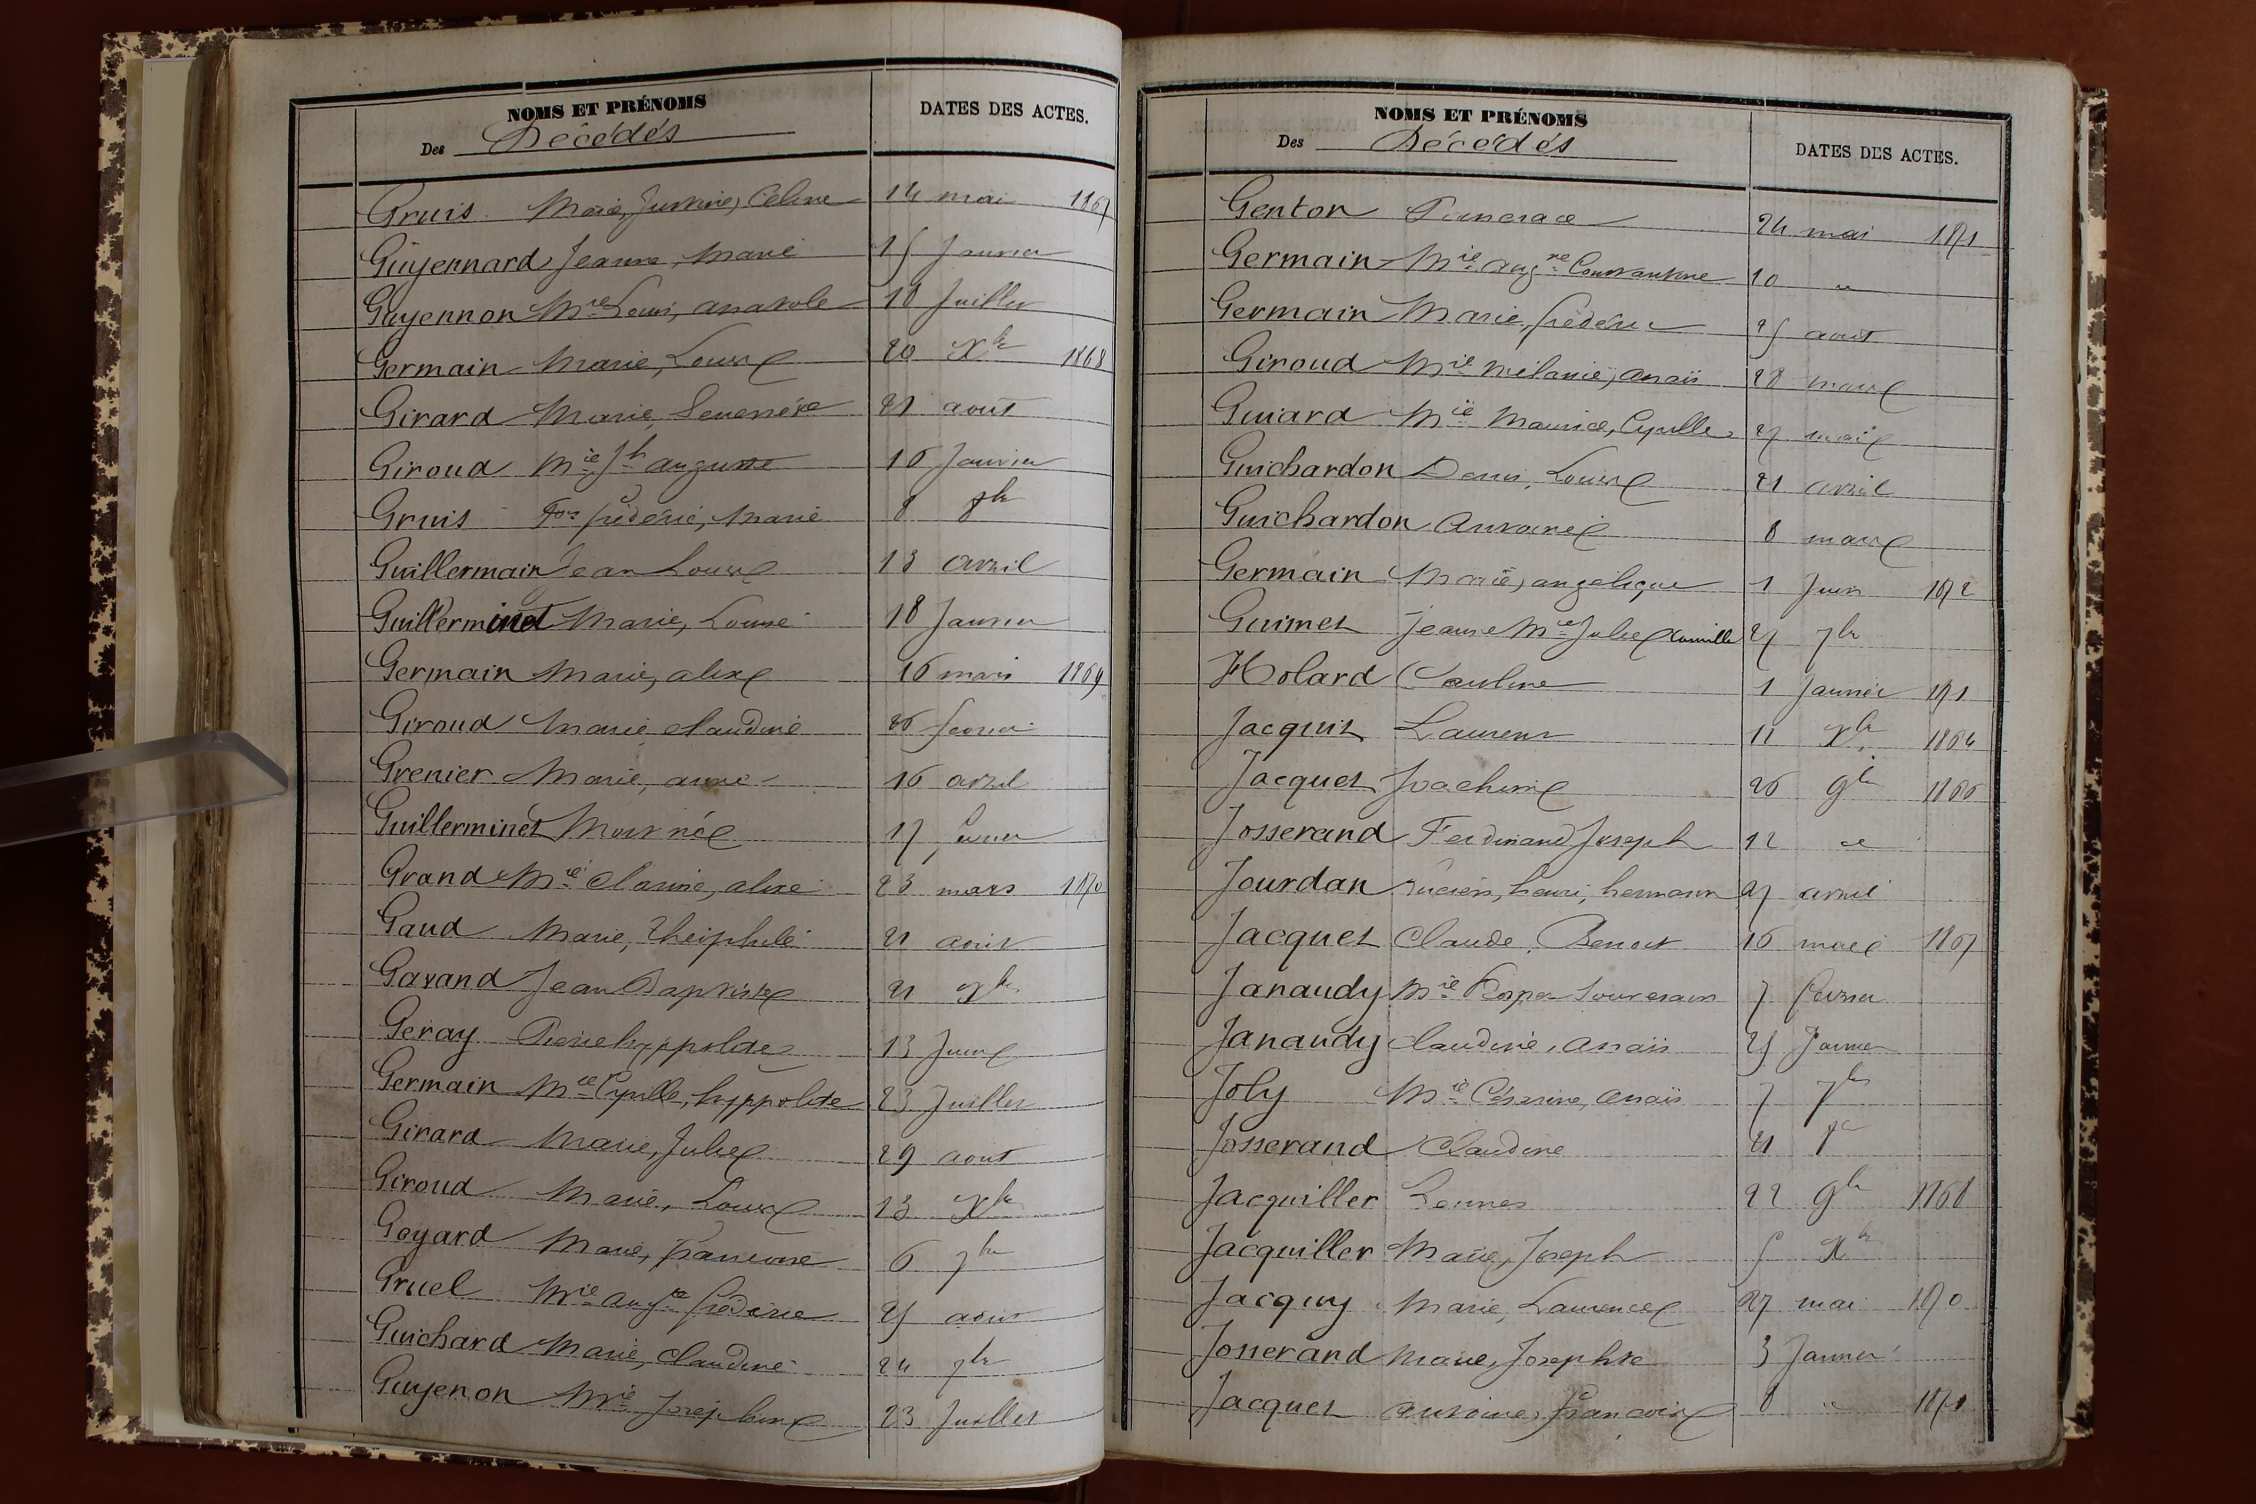 NOMS ET PRÉNOMS
Des Décédés
DATES DES ACTES.
Gruis Marie, Justine, Céline 14 mai 1867
Guyennard Jeanne, Marie 15 Janvier
Guyennon Mie Louis, anatole 18 Juillet
Germain Marie, Louise 20 Xbre 1868
Girard Marie, 21 août
Giroud Mie Jh auguste 16 Janvier
Gruis frédéric, Marie 8
Guillermain Jean Louis 13 avril
Guillerminet Marie, Louise 18 Janvier
Germain Marie, alix 16 mars 1869
Giroud Marie claudine 26 fevrier
Grenier Marie, anne 16 avril
Guillerminet Mort née 17 fevrier
Grand Mie Clarisse, alixe 23 mars 1870
Gaud Marie, Théophile 21 août
Gavand Jean Baptiste 21
Geray Pierre hyppolite 13 Juin
Germain Mie Cyrille, hyppolite 23 Juillet
Girard Marie, Julie 29 aout
Giroud Marie, Louise 13 Xbre
Goyard Marie, francoise 6 7bre
Gruel Mie augte frédéric 25 aout
Guichard Marie, claudine 24 7bre
Guyenon Mie Joséphine 23 Juillet
NOMS ET PRÉNOMS
Des Décédés
DATES DES ACTES.
Genton 24 mai 1871
Germain Mie augne Constantine 10 "
Germain Marie, frédéric 25 août
Giroud Mie Mélanie, anaïs 28 mars
Guiard Mie Maurice, Cyrille 27 mai
Guichardon Denis, Louis 21 avril
Guichardon Antoine 8 mars
Germain Marie, angélique 1 Juin 1872
Guimet Jeanne Mie Julie Camille 27 7bre
Holard Pauline 1 Janvier 1871
Jacquit Laurent 11 Xbre 1864
Jacquet Joachim 26 9bre 1866
Josserand Ferdinand Joseph 12 "
Jourdan Lucien, henri, hermann 27 avril
Jacquet Claude, Benoit 16 mai 1867
Janaudy Mie Prosper 7 fevrier
Janaudy claudine, anaïs 25 Janvier
Joly Mie Césarine, anaïs 7 7bre
Josserand Claudine 21
Jacquiller 22 9bre 1868
Jacquiller Marie, Joseph 5 Xbre
Jacquy Marie, Laurence 27 mai 1870
Josserand Marie, Josephte 3 Janvier
Jacquet antoine, françois 8 " 1871